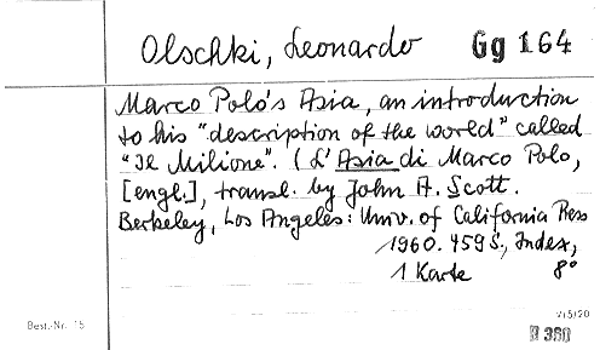 Olschki, Leonardo Gg 164
Marco Polo's Asia, an introduction
to his "description of the world" called
"Il Milione". (L'Asia di Marco Polo,
[engl.], transl. by John A. Scott.
Berkeley, Los Angeles: Univ. of California Press
1960. 459 S., Index,
1 Karte 8°
Best.-Nr. 15
V/5/20
380